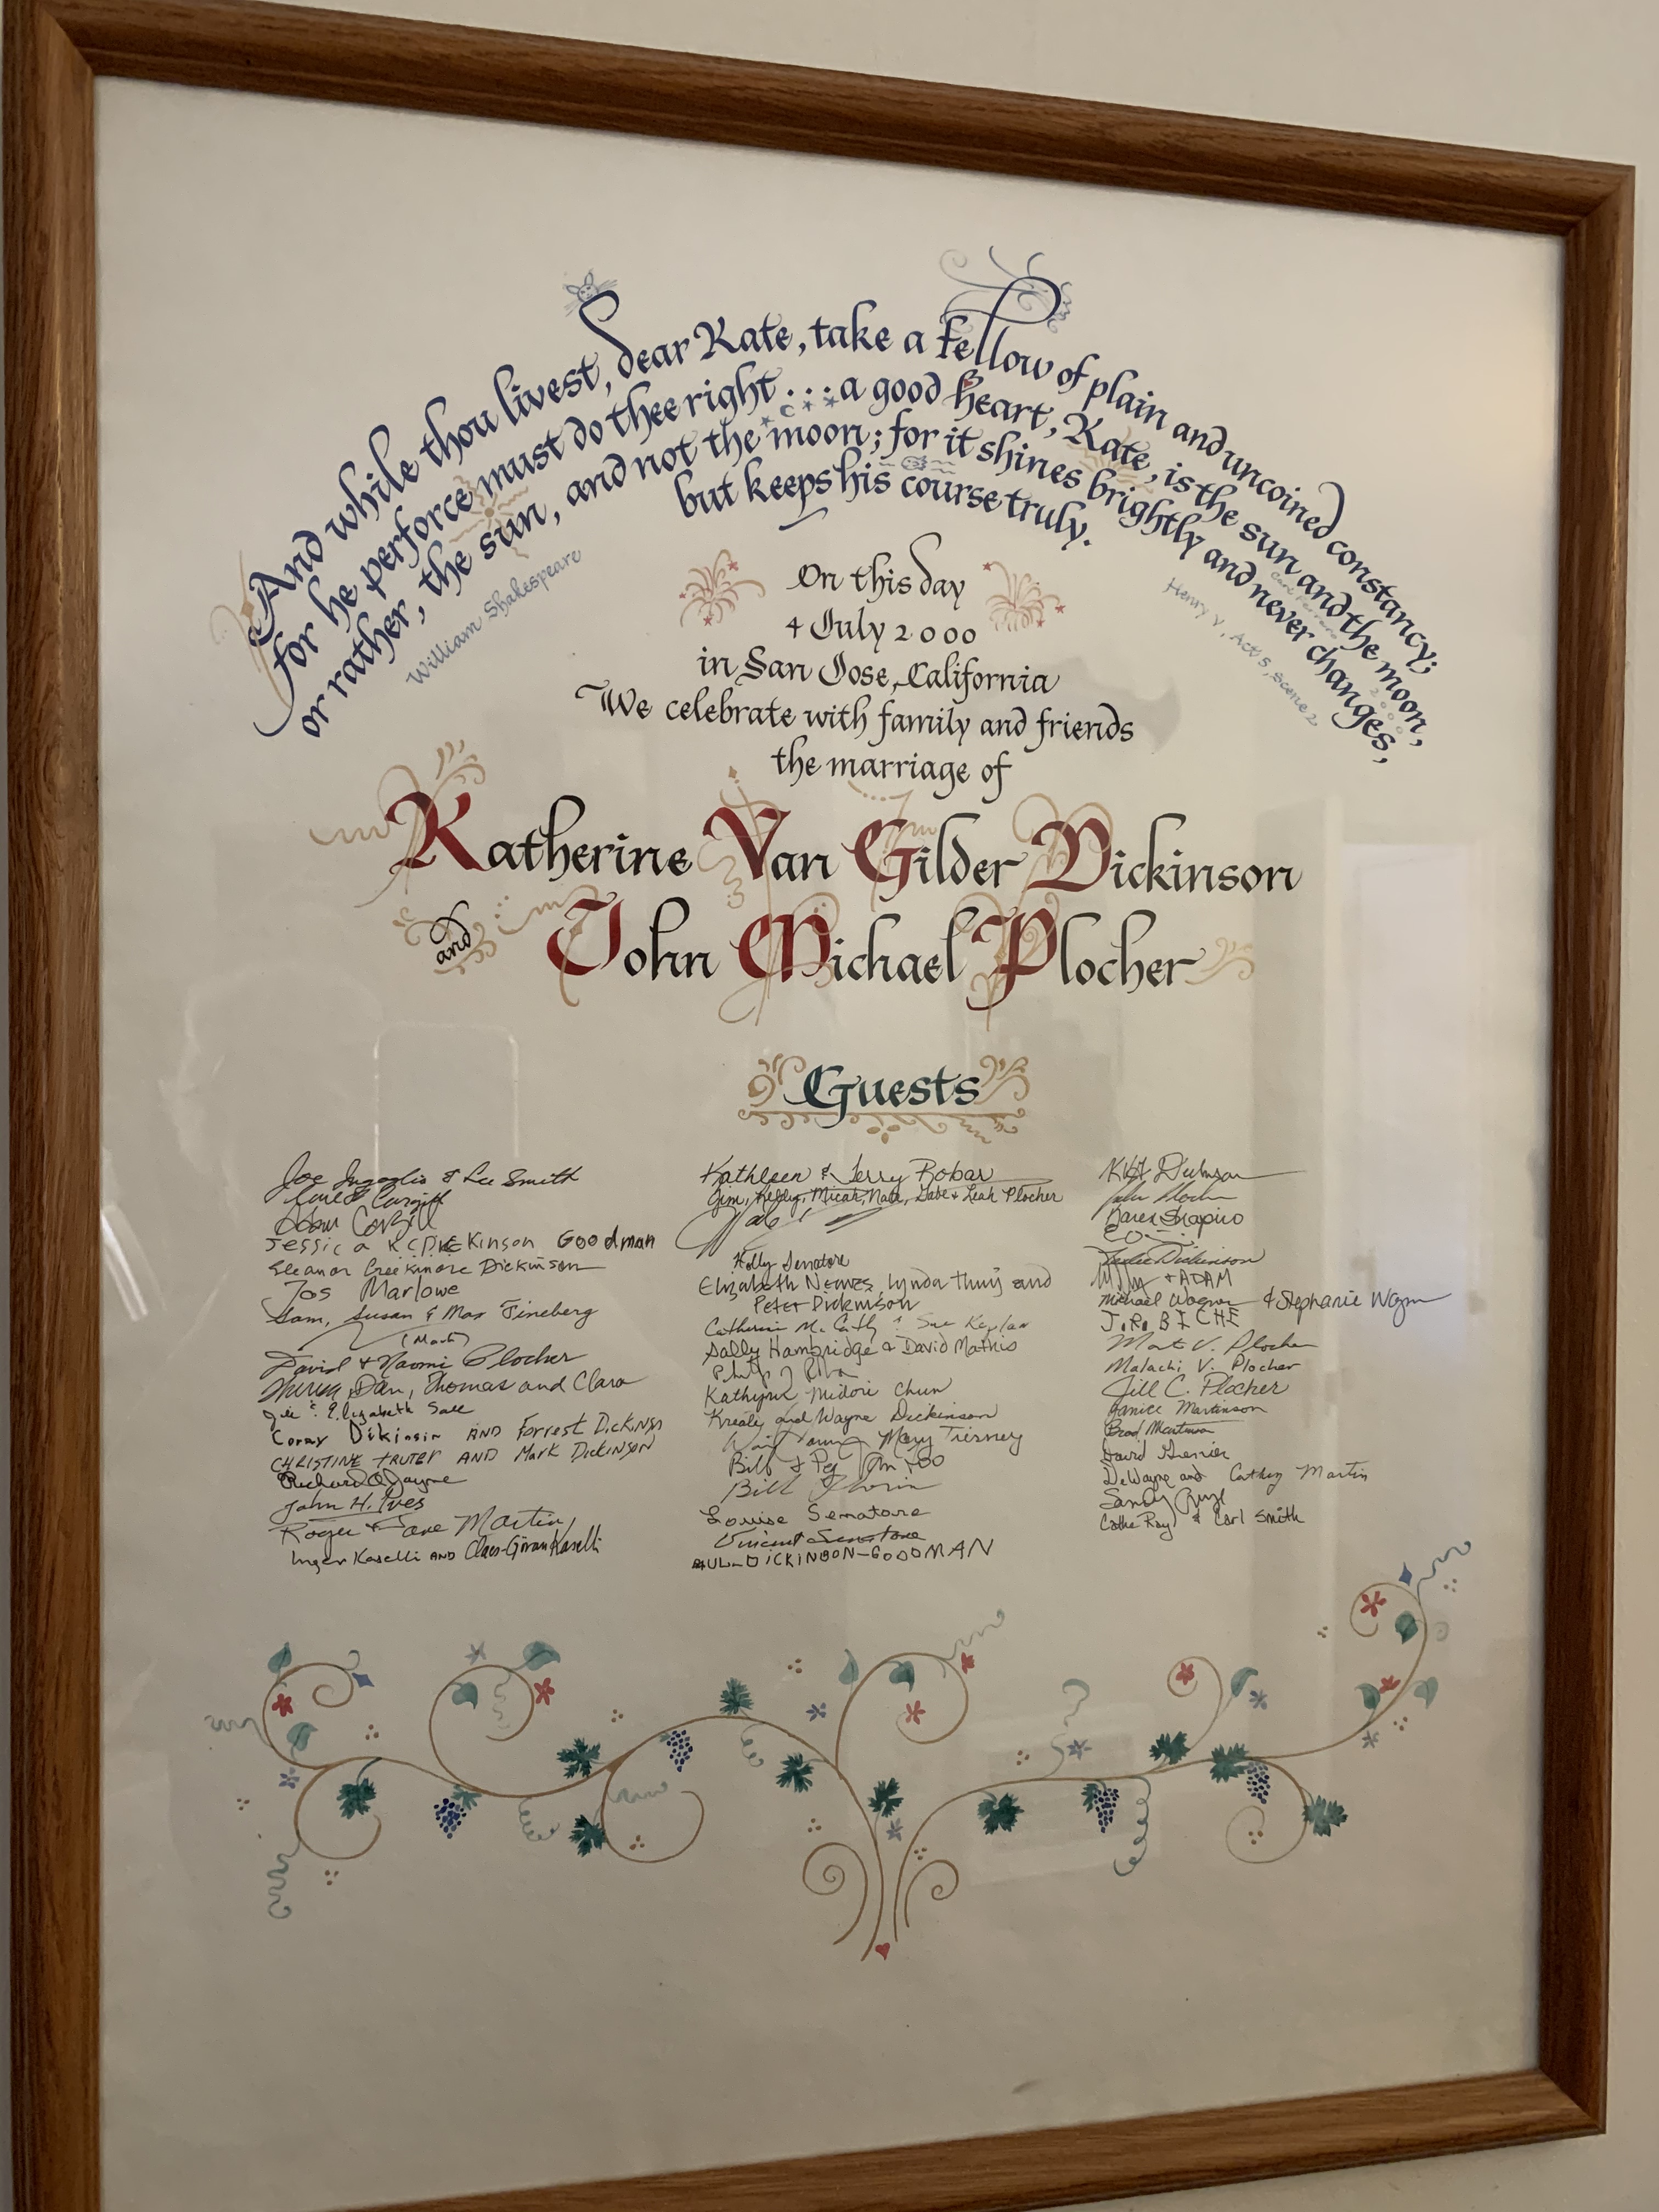 And while thou livest, dear Kate, take a fellow of plain and uncoined constancy;
for he perforce must do thee right . . . a good heart, Kate, is the sun and the moon,
or rather, the sun, and not the moon; for it shines brightly and never changes,
but keeps his course truly.
William Shakespeare
Henry V, Act 5, scene 2
On this day
4 July 2000
in San Jose, California
We celebrate with family and friends
the marriage of
Katherine Van Gilder Dickinson
and
John Michael Plocher
Guests
Joe & Lee Smith
Jessica K.C. Dickinson Goodman
Eleanor Creekmore Dickinson
Jos Marlowe
Sam, Susan & Max Fineberg
(Mark)
David & Naomi Plocher
Dan, Thomas and Clara
& Elizabeth Sall
Dikinsin AND Forrest Dickins
CHRISTINE TRUTER AND Mark DICKINSON
Richard O. Jayne
John H. Ives
Roger & Jane Martin
Inger Kaselli AND Claes-Göran Kaselli
Kathleen & Jerry Robar
Jim, Kelly, Micah, Nate, Gabe & Leah Plocher
Holly Senatore
Elizabeth Neaves, Lynda Thuy and
Peter Dickinson
Catherine McCarthy & Sue Kaplan
Sally Hambridge & David Mathis
Kathryn Midori Chun
and Wayne Dickinson
Mary Tierney
Bill & Peg
Bill
Louise Senatore
Vincent Senatore
DICKINSON-GOODMAN
Dickinson
John Plocher
Karen Shapiro
Dickinson
& ADAM
Michael Wagner & Stephanie
Mat V. Plocher
Malachi V. Plocher
Jill C. Plocher
Janice Martinson
Brad Martinson
David Grenier
DeWayne and Cathey Martin
Sandy
Cathe Ray & Carl Smith